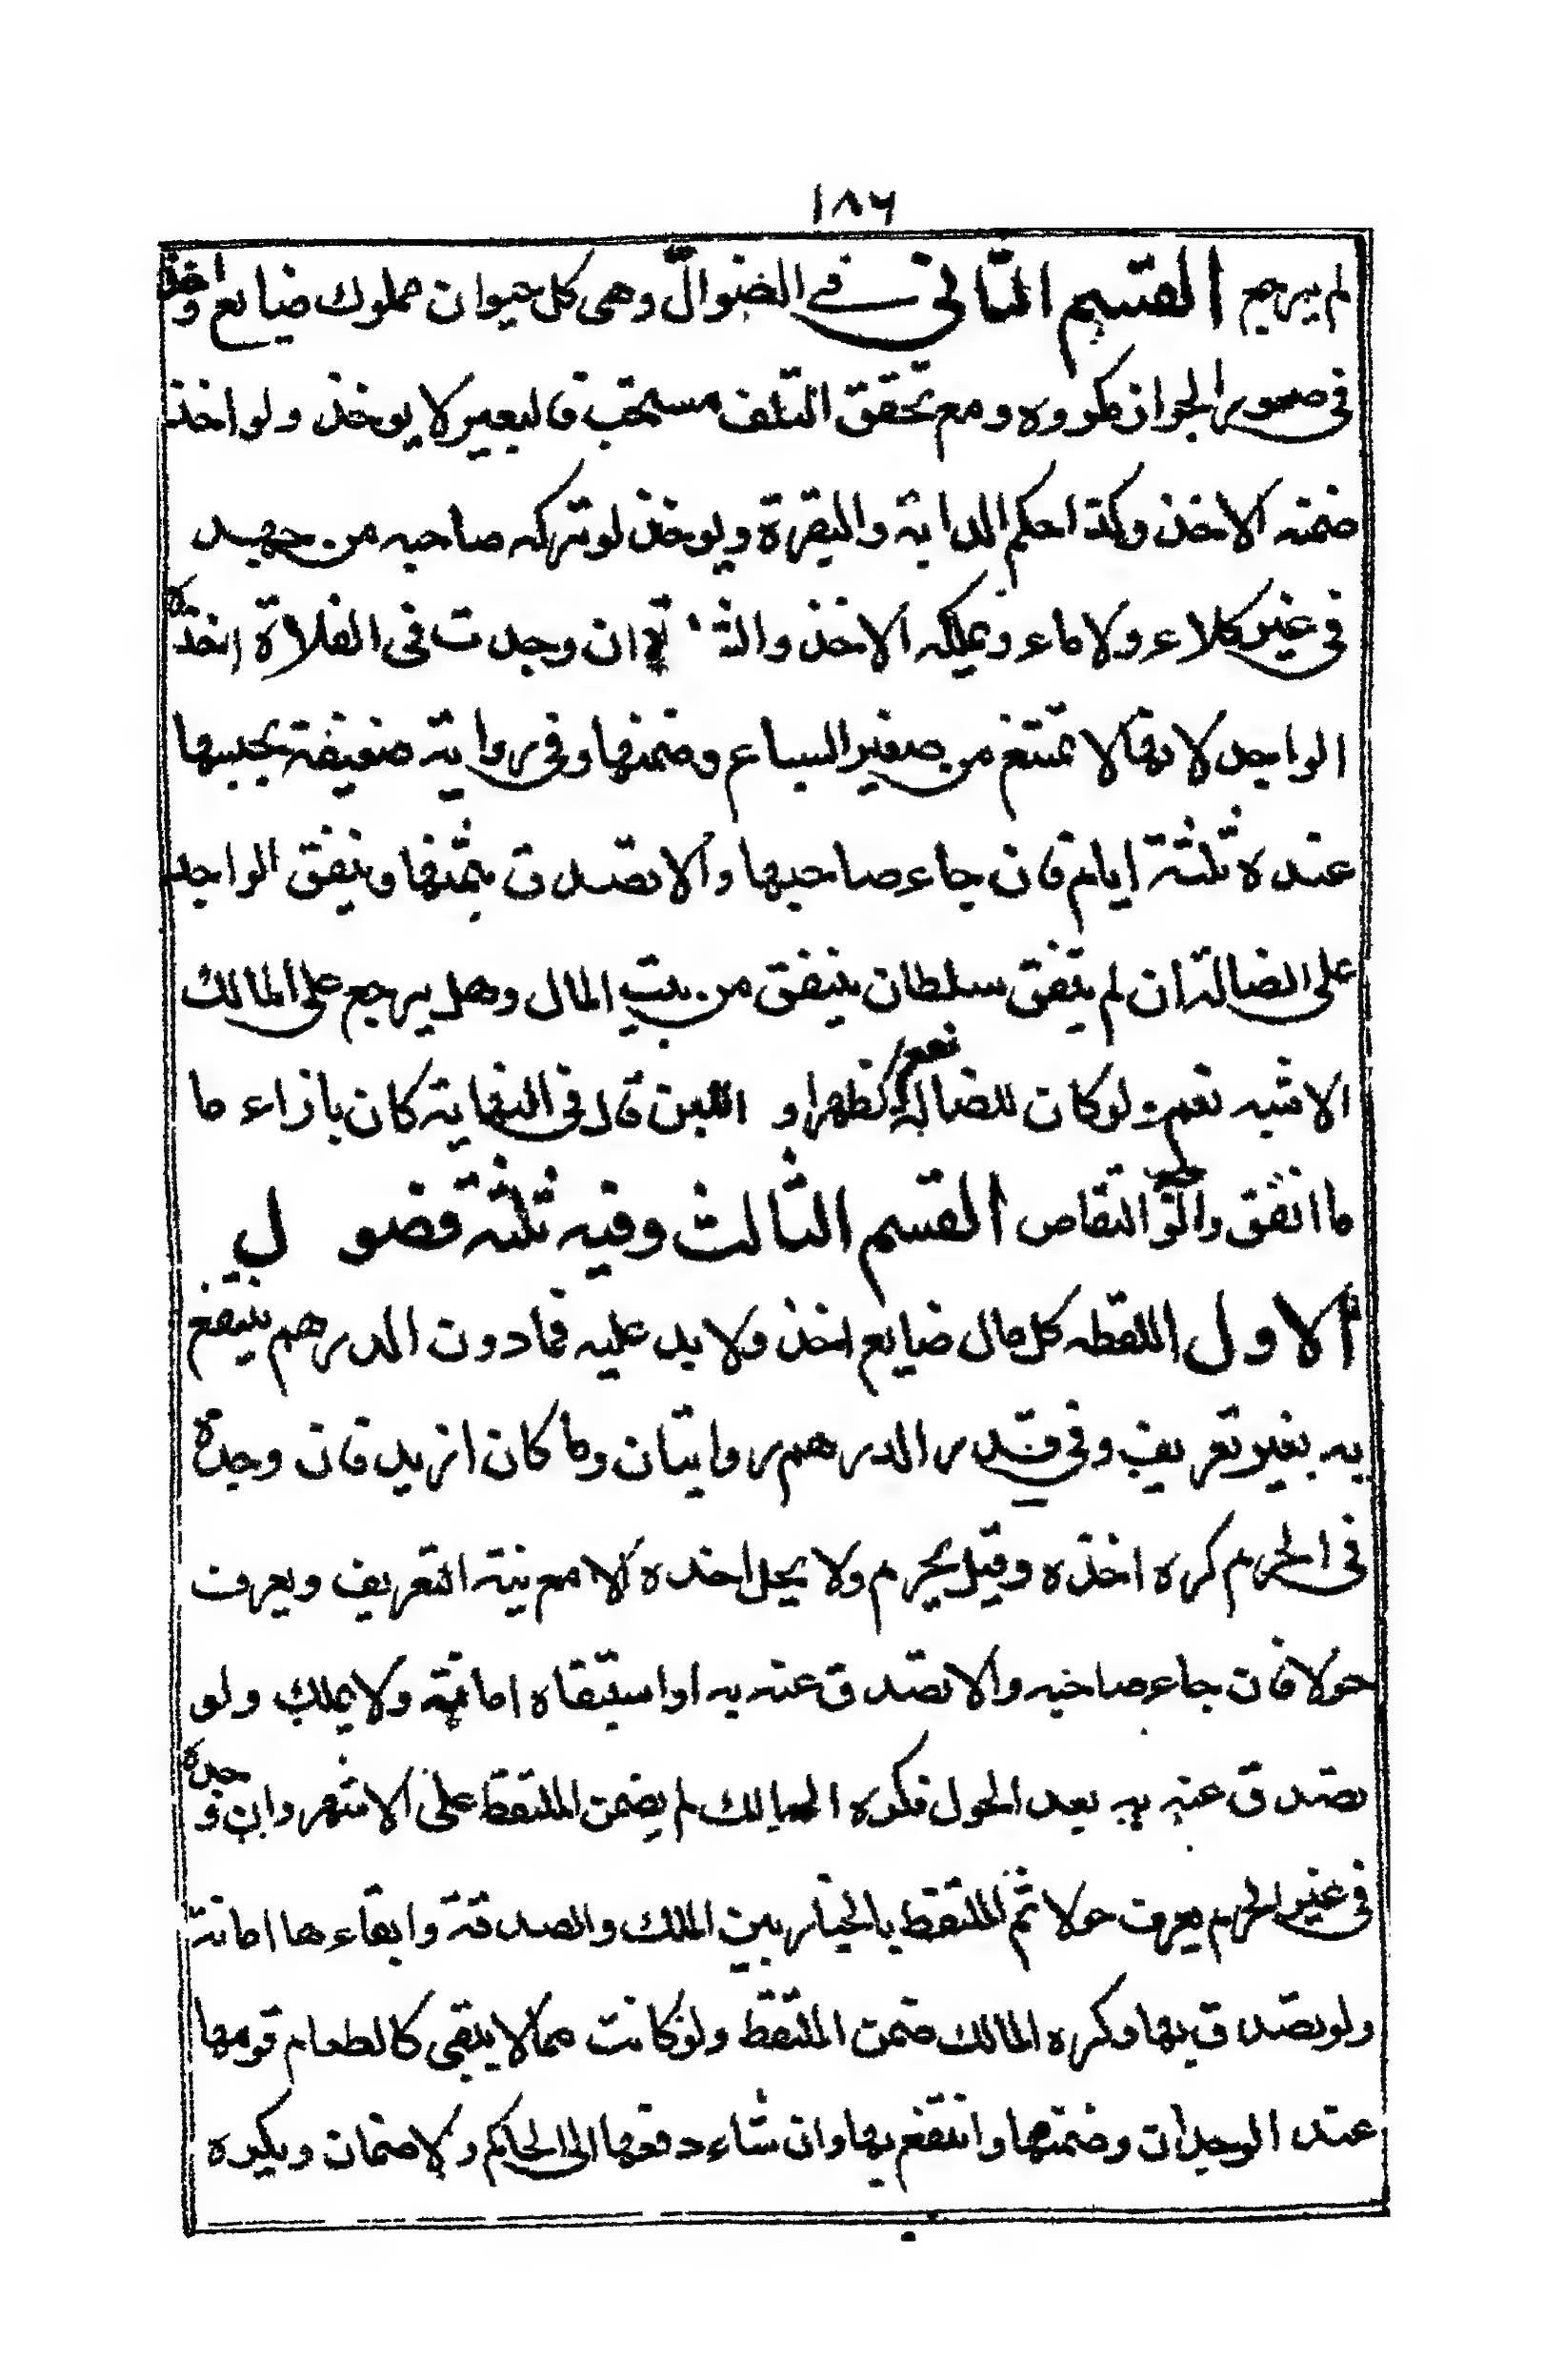 ١٨٦
لم يرجع القسم الثانى فى الضوالّ وهى كل حيوان مملوك ضايع واخذه
فى صورة الجواز مكروه ومع تحقق التلف مستحب فالبعير لا يوخذ ولو اخذ
ضمنه الاخذ وكذا حكم الدابة والبقرة ويوخذ لو تركه صاحبه من جهد
فى غير كلاء ولا ماء ويملكه الاخذ والشاة ان وجدت فى الفلاة اخذها
الواجد لانها لا تمتنع من صغير السباع وضمنها وفى رواية ضعيفة يحبسها
عنده ثلثة ايام فان جاء صاحبها والا تصدق بثمنها وينفق الواجد
على الضالة ان لم يتفق سلطان ينفق من بيت المال وهل يرجع على المالك
الاشبه نعم ولو كان للضالة نفع كظهر او اللبن قال فى النهاية كان بازاء ما
ما انفق والوجه التقاص القسم الثالث وفيه ثلثة فصول
الاول اللقطه كل مال ضايع اخذ ولا يد عليه فما دون الدرهم ينتفع
به بغير تعريف وفى قدر الدرهم روايتان وما كان ازيد فان وجده
فى الحرم كره اخذه وقيل يحرم ولا يحل اخذه الا مع نية التعريف ويعرف
حولا فان جاء صاحبه والا تصدق عنه به او استبقاه امانة ولا يملك ولو
تصدق عنه به بعد الحول فكره المالك لم يضمن الملتقط على الاشهر وان وجده
فى غير الحرم يعرف حولا ثم الملتقط بالخيار بين الملك والصدقة وابقاءها امانة
ولو تصدق بها وكره المالك ضمن الملتقط ولو كانت مما لا يبقى كالطعام قومها
عند الوجدان وضمنها وانتفع بها وان شاء دفعها الى الحاكم ولا ضمان ويكره